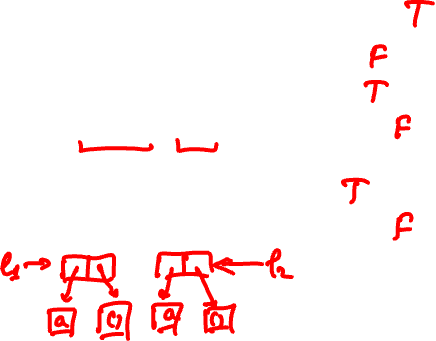 T
F
T
F
T
F
l1 → ← l2
a () a ()